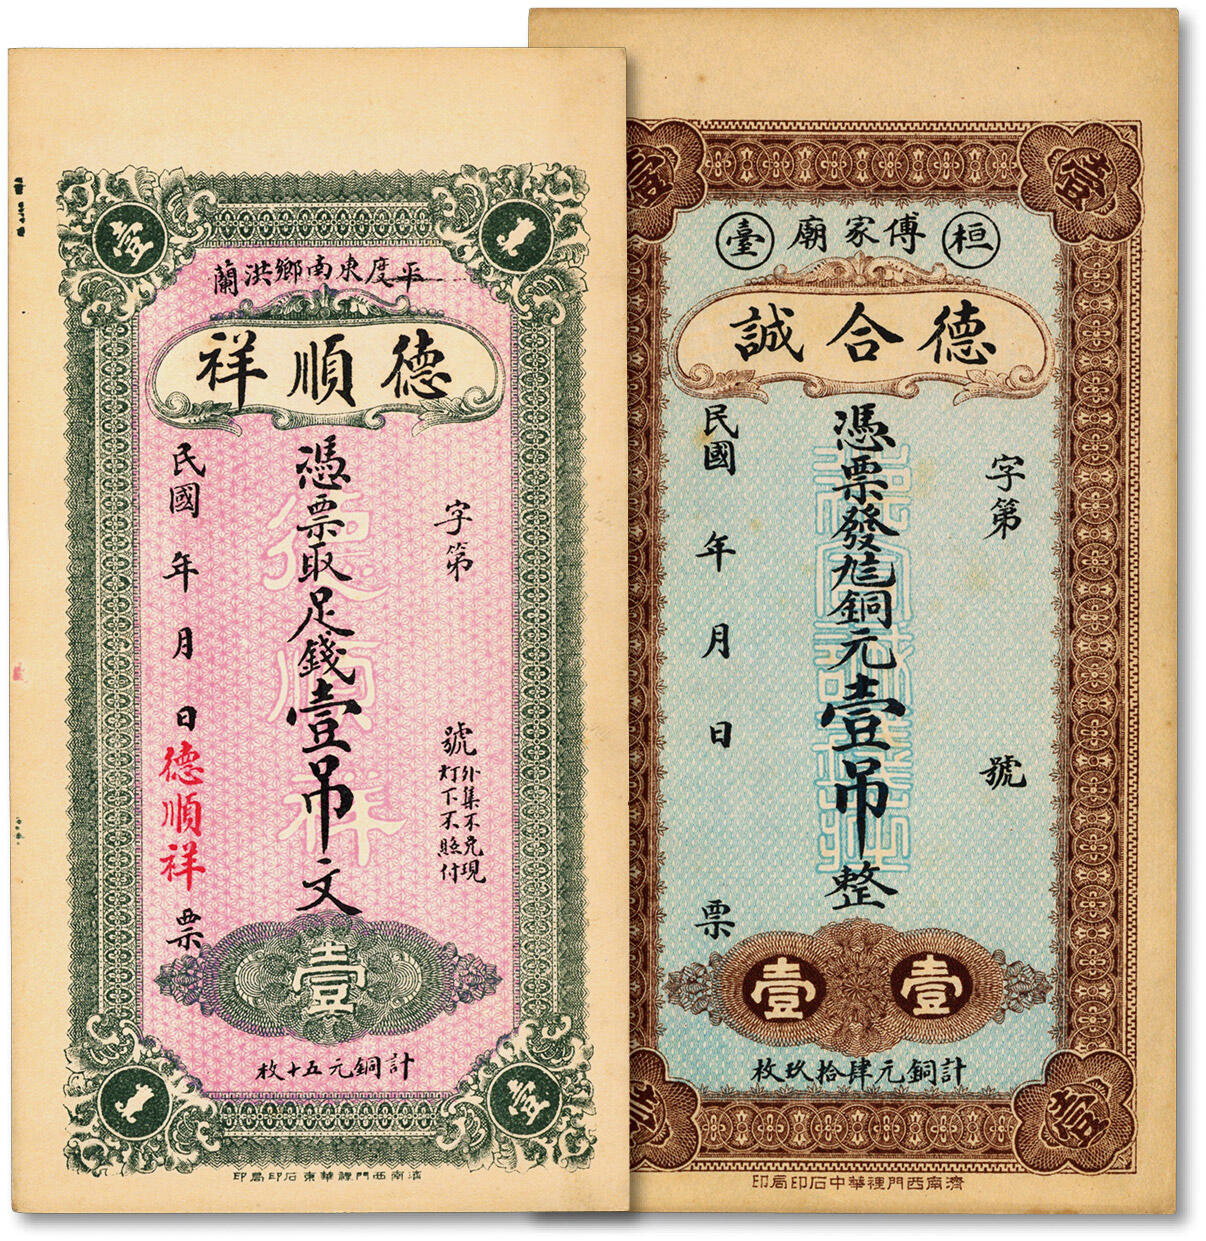 壹
平度東南鄉洪蘭
德順祥
字第 號
外集不兌現
灯下不照付
憑票取足錢壹吊文
德順祥
民國 年 月 日 德順祥 票
壹
計銅元五十枚
壹
濟南西門裡華東石印局印
壹
壹
桓 傅家廟 臺
德合誠
字第 號
憑票發銅元壹吊整
民國 年 月 日 票
壹 壹
計銅元肆拾玖枚
壹
壹
濟南西門裡華中石印局印